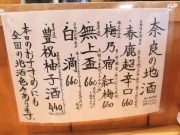 奈良の地酒
春鹿超辛口 660
梅乃宿紅梅 660
無上盃 660
白滴 660
豊祝柚子酒 440
本日のおすすめにも
全国の地酒色々あります。